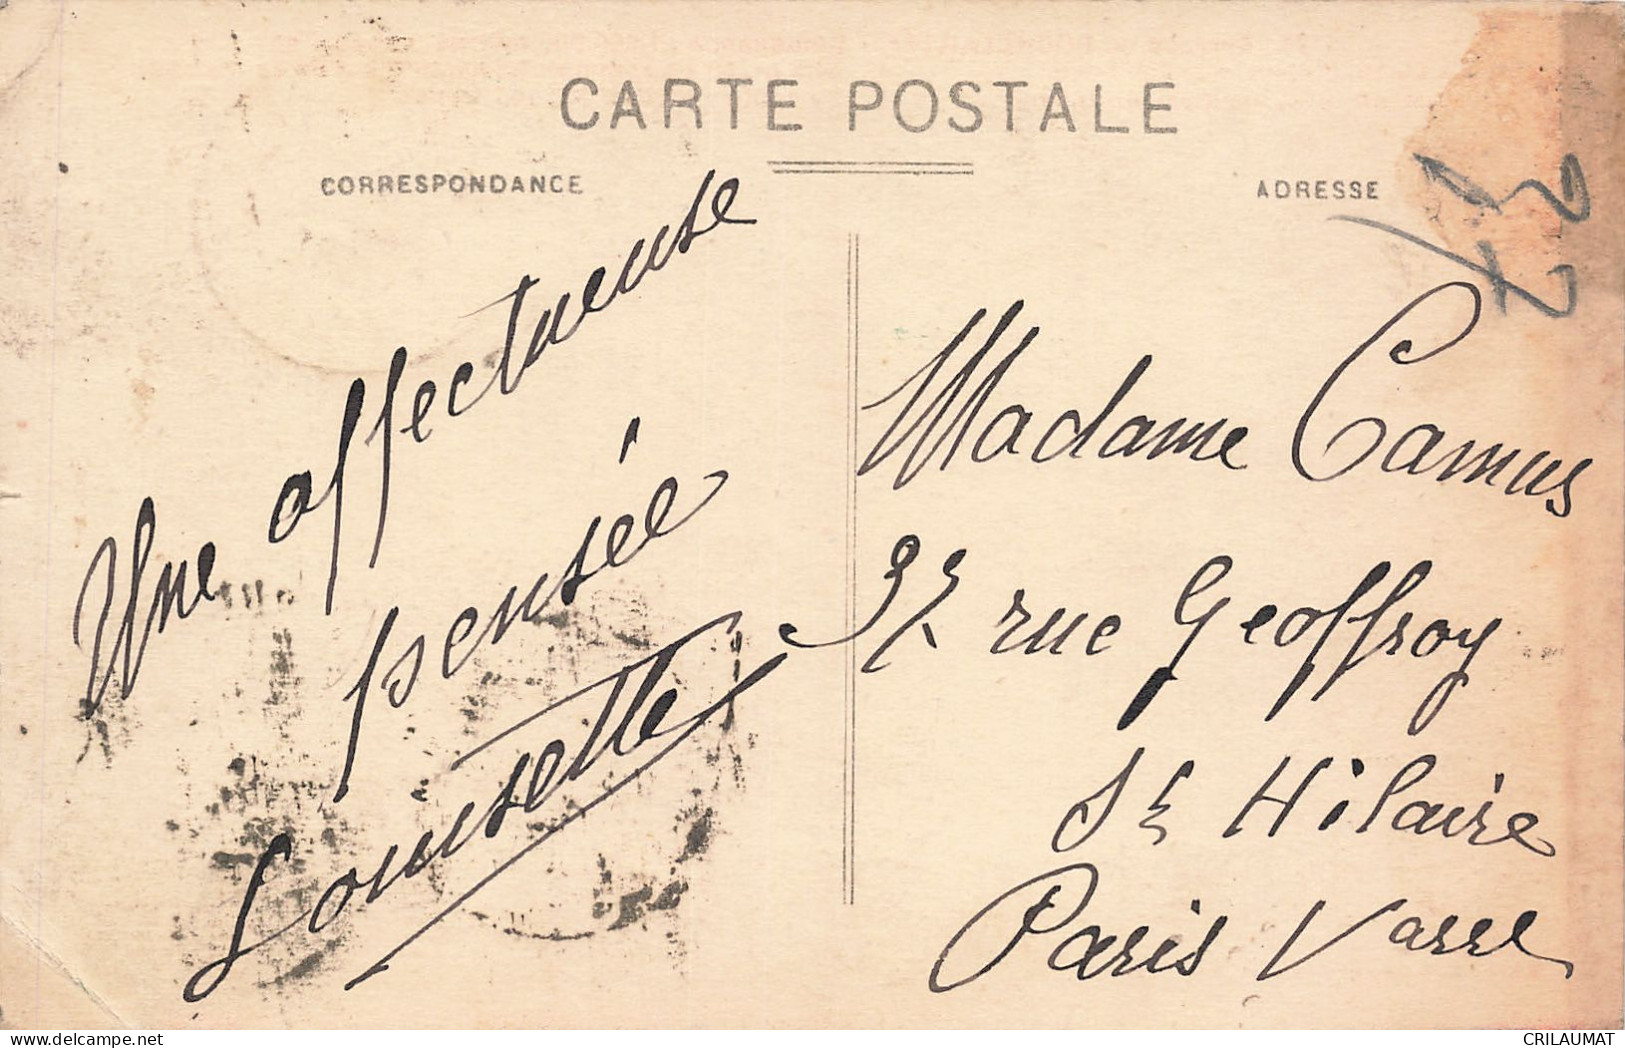 CARTE POSTALE
CORRESPONDANCE
ADRESSE
Une affectueuse
pensée
Louisette
Madame Camus
32 rue Geoffroy
St Hilaire
Paris
CRILAUMAT